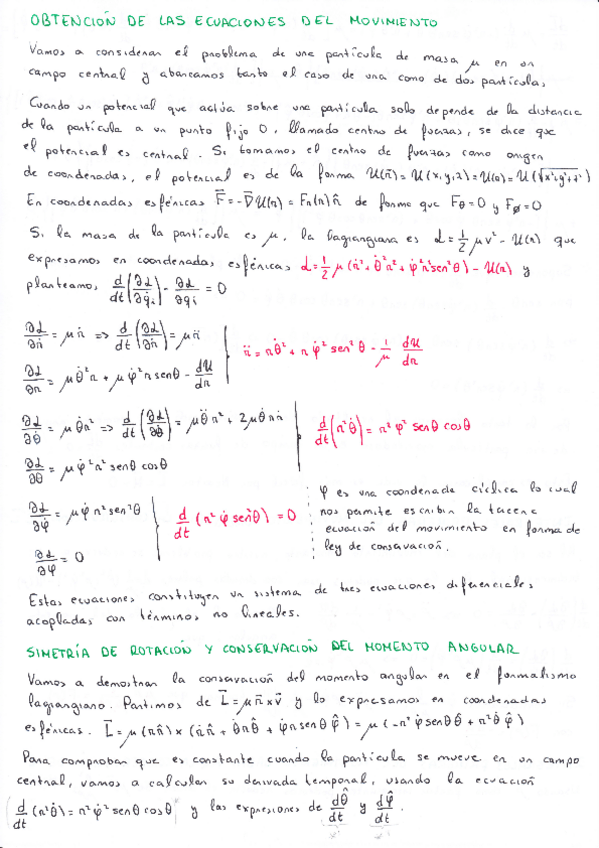 OBTENCIÓN DE LAS ECUACIONES DEL MOVIMIENTO
Vamos a considerar el problema de una partícula de masa μ en un
campo central y abarcamos tanto el caso de una como de dos partículas.
Cuando un potencial que actúa sobre una partícula solo depende de la distancia
de la partícula a un punto fijo O, llamado centro de fuerzas, se dice que
el potencial es central. Si tomamos el centro de fuerzas como origen
de coordenadas, el potencial es de la forma U(r⃗) = U(x,y,z) = U(r) = U(√x²+y²+z²)
En coordenadas esféricas F⃗ = -∇⃗U(r) = Fr(r) r̂ de forma que Fθ = 0 y Fφ = 0
Si la masa de la partícula es μ, la lagrangiana es L = 1/2 μv² - U(r) que
expresamos en coordenadas esféricas L = 1/2 μ(ṙ² + θ̇²r² + φ̇²r²sen²θ) - U(r) y
planteamos d/dt(∂L/∂q̇i) - ∂L/∂qi = 0
∂L/∂ṙ = μṙ => d/dt(∂L/∂ṙ) = μr̈
∂L/∂r = μθ̇²r + μφ̇²r senθ - dU/dr
r̈ = rθ̇² + rφ̇² sen²θ - 1/μ dU/dr
∂L/∂θ̇ = μθ̇r² => d/dt(∂L/∂θ̇) = μθ̈r² + 2μθ̇rṙ
∂L/∂θ = μφ̇²r² senθ cosθ
d/dt(r²θ̇) = r²φ̇² senθ cosθ
∂L/∂φ̇ = μφ̇r²sen²θ
∂L/∂φ = 0
d/dt(r²φ̇ sen²θ) = 0
φ es una coordenada cíclica lo cual
nos permite escribir la tercera
ecuación del movimiento en forma de
ley de conservación.
Estas ecuaciones constituyen un sistema de tres ecuaciones diferenciales
acopladas con términos no lineales.
SIMETRÍA DE ROTACIÓN Y CONSERVACIÓN DEL MOMENTO ANGULAR
Vamos a demostrar la conservación del momento angular en el formalismo
lagrangiano. Partimos de L⃗ = μ r⃗ x v⃗ y lo expresamos en coordenadas
esféricas. L⃗ = μ(r r̂) x (ṙ r̂ + θ̇r θ̂ + φ̇r senθ φ̂) = μ(-r²φ̇ senθ θ̂ + r²θ̇ φ̂)
Para comprobar que es constante cuando la partícula se mueve en un campo
central, vamos a calcular su derivada temporal, usando la ecuación
d/dt(r²θ̇) = r²φ̇² senθ cosθ y las expresiones de dθ̂/dt y dφ̂/dt.